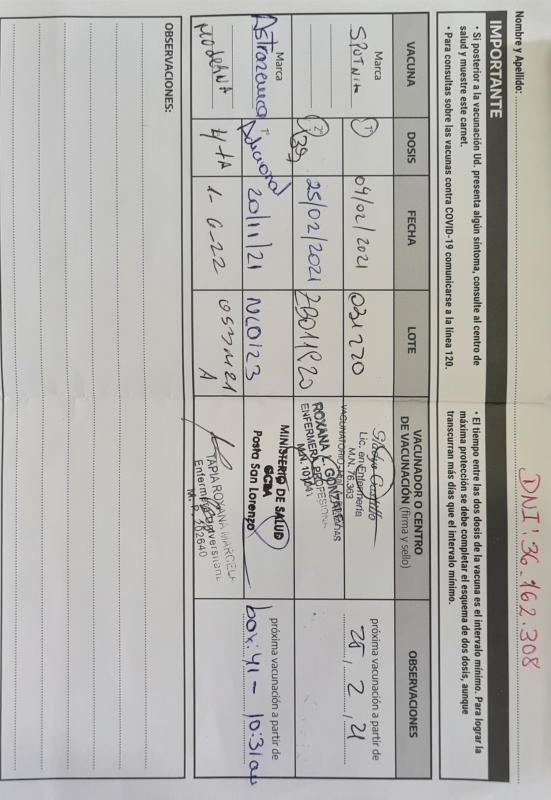 Nombre y Apellido:
DNI: 36.162.308
IMPORTANTE
• Si posterior a la vacunación Ud. presenta algún síntoma, consulte al centro de
salud y muestre este carnet.
• Para consultas sobre las vacunas contra COVID-19 comunicarse a la línea 120.
• El tiempo entre las dos dosis de la vacuna es el intervalo mínimo. Para lograr la
máxima protección se debe completar el esquema de dos dosis, aunque
transcurran más días que el intervalo mínimo.
VACUNA DOSIS FECHA LOTE VACUNADOR O CENTRO DE VACUNACIÓN (firma y sello) OBSERVACIONES
Marca 1º 04/02/2021 031270 próxima vacunación a partir de
Lic. en Enfermería
M.N. 76.363
25, 2, 21
2º 25/02/2021
ROXANA K. GONZALEZ
ENFERMERA PROFESIONAL
Marca 1º
Astrazeneca Adicional 20/11/21 NC0123
MINISTERIO DE SALUD
GCBA
Posta San Lorenzo
próxima vacunación a partir de
box: 41 - 10:31
Moderna 4tA
TAPIA ROXANA MARCELA
OBSERVACIONES: